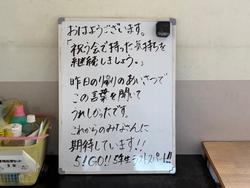 おはようございます。
「祝う会で持った気持ちを
継続しましょう。」
昨日の帰りのあいさつで
この言葉を聞いて
うれしかったです。
これからのみなさんに
期待しています!!
5/GO!! 5年生